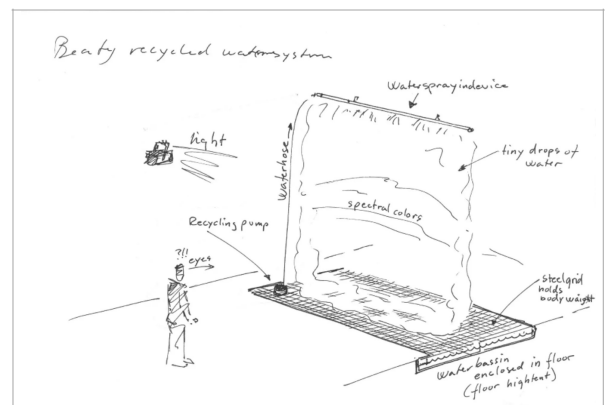 Beaty recycled watersystem
Watersprayindevice
light
tiny drops of
water
Waterhose
spectral colors
Recycling pump
?!!
eyes
steelgrid
holds
bodyweight
Waterbassin
enclosed in floor
(floor hightent)